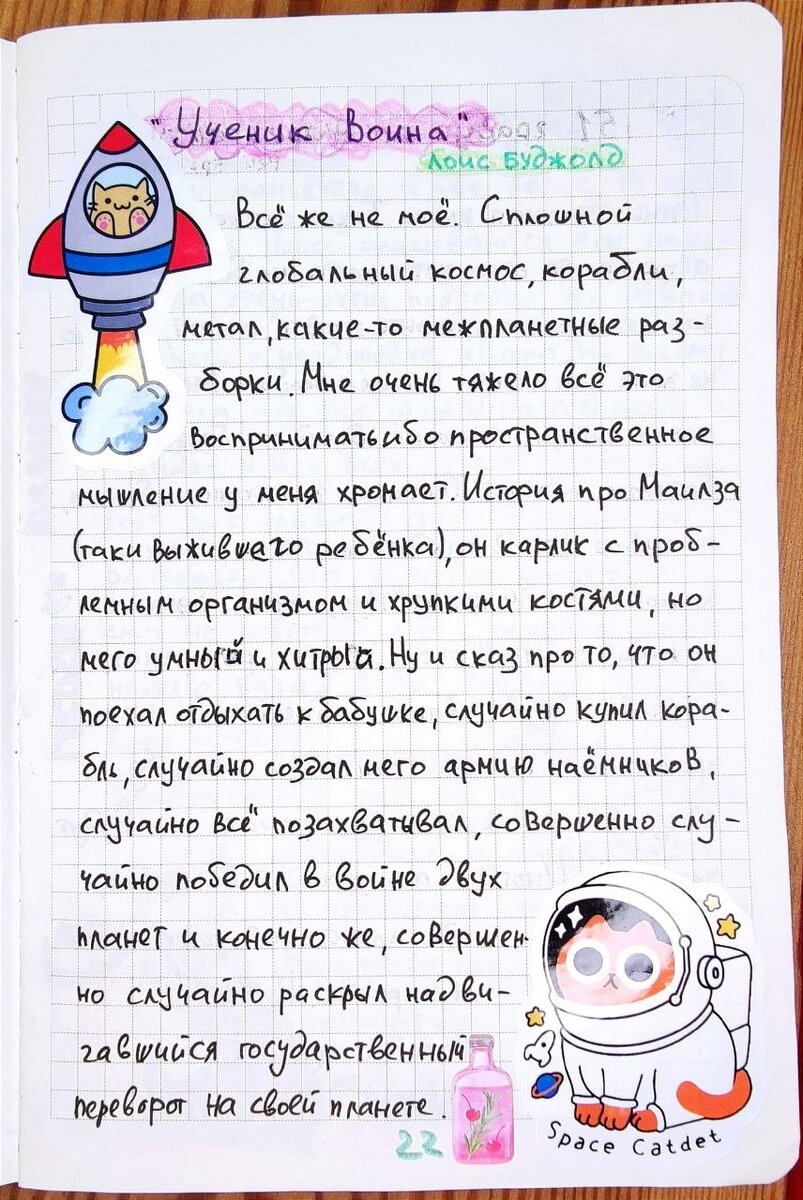 "Ученик воина"
Лоис Буджолд
Всё же не моё. Сплошной
глобальный космос, корабли,
метал, какие-то межпланетные раз-
борки. Мне очень тяжело всё это
воспринимать ибо пространственное
мышление у меня хромает. История про Маилза
(таки выжившего ребёнка), он карлик с проб-
лемным организмом и хрупкими костями, но
мего умный и хитрый. Ну и сказ про то, что он
поехал отдыхать к бабушке, случайно купил кора-
бль, случайно создал мего армию наёмников,
случайно всё позахватывал, совершенно слу-
чайно победил в войне двух
планет и конечно же, совершен-
но случайно раскрыл надви-
гавшийся государственный
переворот на своей планете.
22
Space Catdet